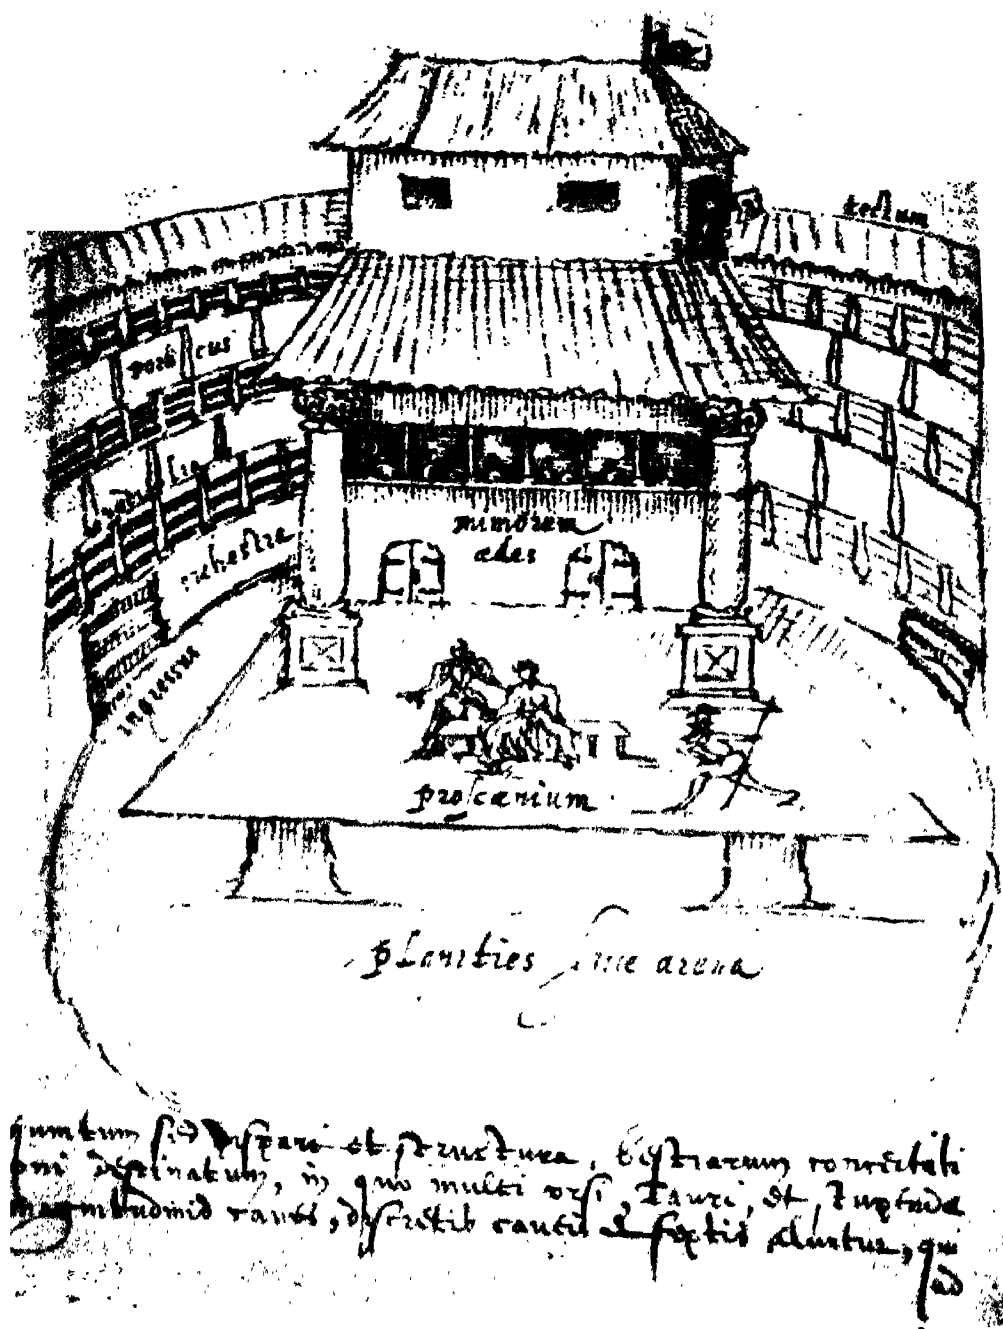 tectum
porticus
sedilia
orchestra
mimorum
ædes
ingressus
proscænium
planities sive arena
quintum sed dispari et structura, bestiarum concertati
oni destinatum, in quo multi ursi, Tauri, et stupendæ
magnitudinis canes, discretis caveis & septis aluntur, qui
ad